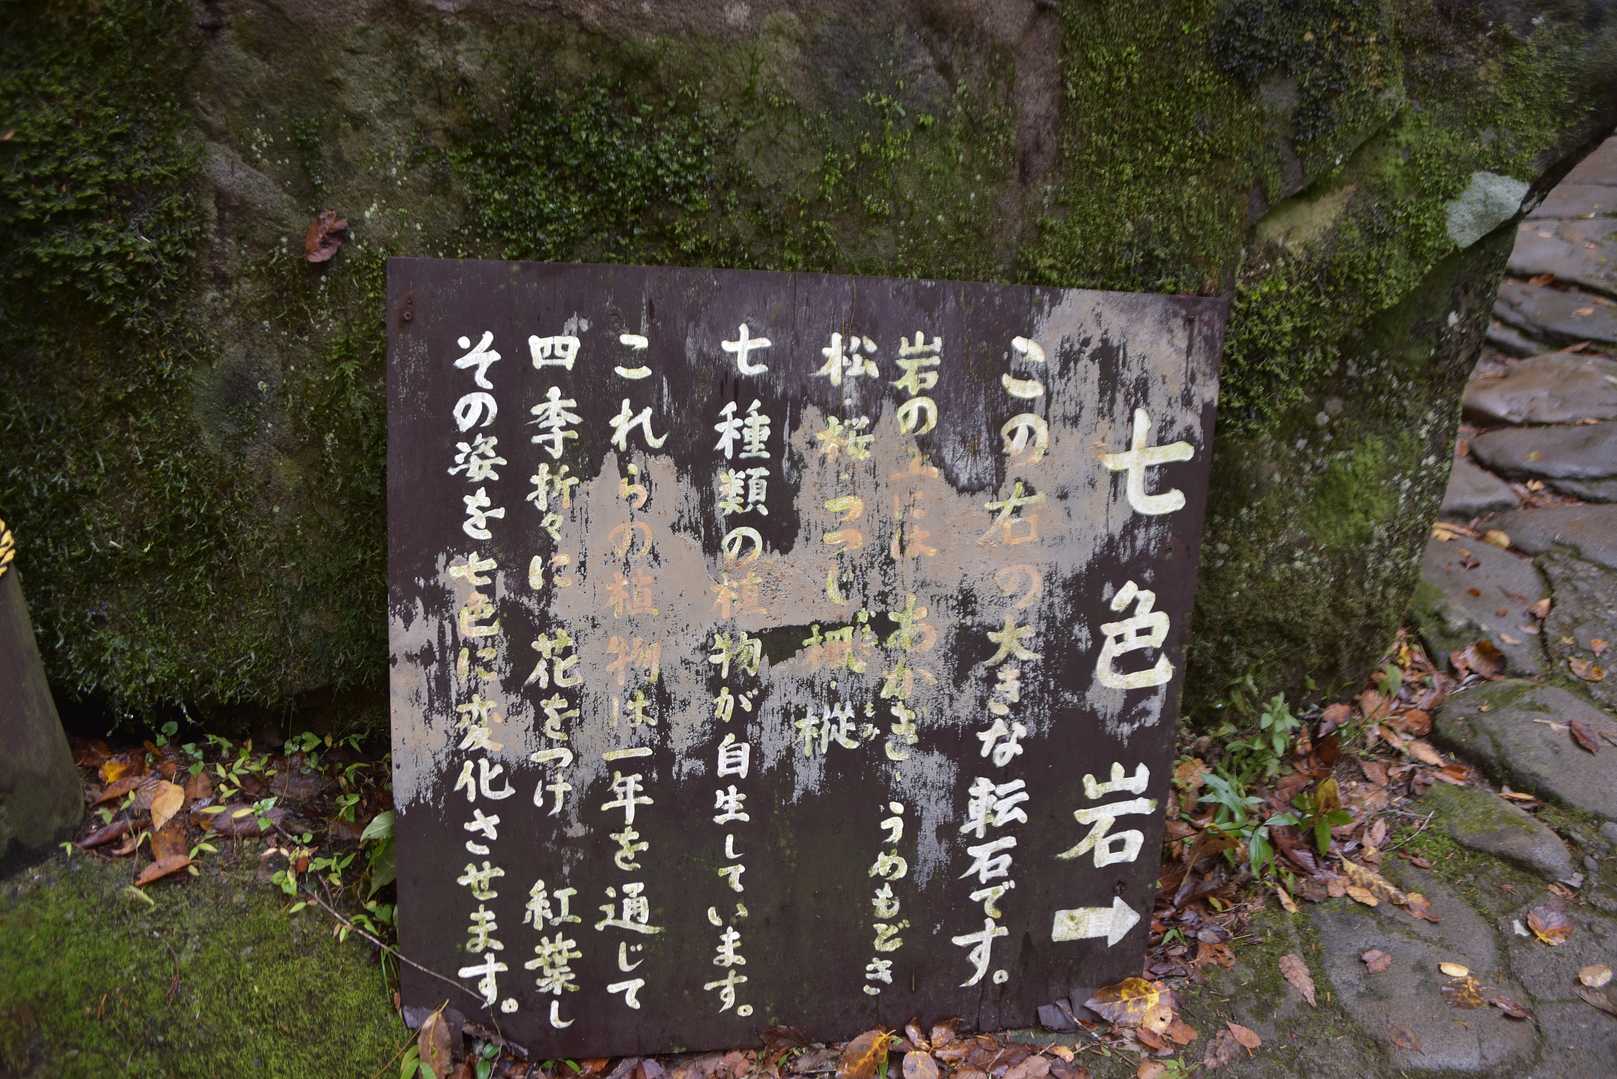 七色岩→
この右の大きな転石です。
岩の上には うめもどき
松・桜・つつじ・楓・樅
七種類の植物が自生しています。
これらの植物は一年を通じて
四季折々に花をつけ 紅葉し
その姿を七色に変化させます。